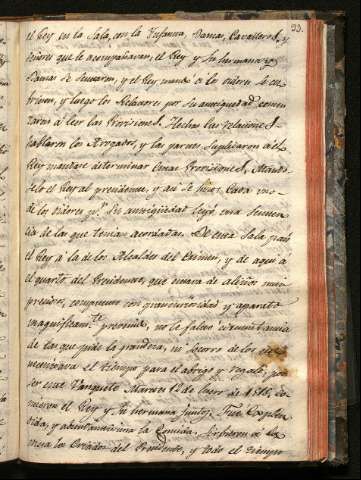 93.
el Rey en la Sala, con la Infanta, Damas, Cavalleros, y
Señores que le acompañavan, el Rey y su hermana y
Damas se sentaron, y el Rey mandó a los oidores se cu-
briesen, y luego los Relatores por su antiguedad comen-
zaron à leer las Provisiones. Hechas las relaciones
hablaron los Avogados, y las partes suplicaron a el
Rey mandase determinar las Provisiones,
el Rey al presidente, y asi se hizo: Cada uno
de los oidores por su antiguedad leyó una Senten-
cia de las que tenian acordadas. De esta Sala pasó
el Rey à la de los Alcaldes del Crimen, y de aqui à
el quarto del Presidente, que estava de aliño
compuesto con gran curiosidad y aparato
magnificam.te prevenido, no le faltó circunstancia
de las que pide la grandeza, ni
el tiempo para el abrigo y regalo,
este Vanquete Martes 12 de Enero de co-
mieron el Rey y su hermana juntos, Fue Esplen-
dida, y abundantisima la Comida. Sirvieron à la
mesa los Criados del Presidente, y todo el tiempo